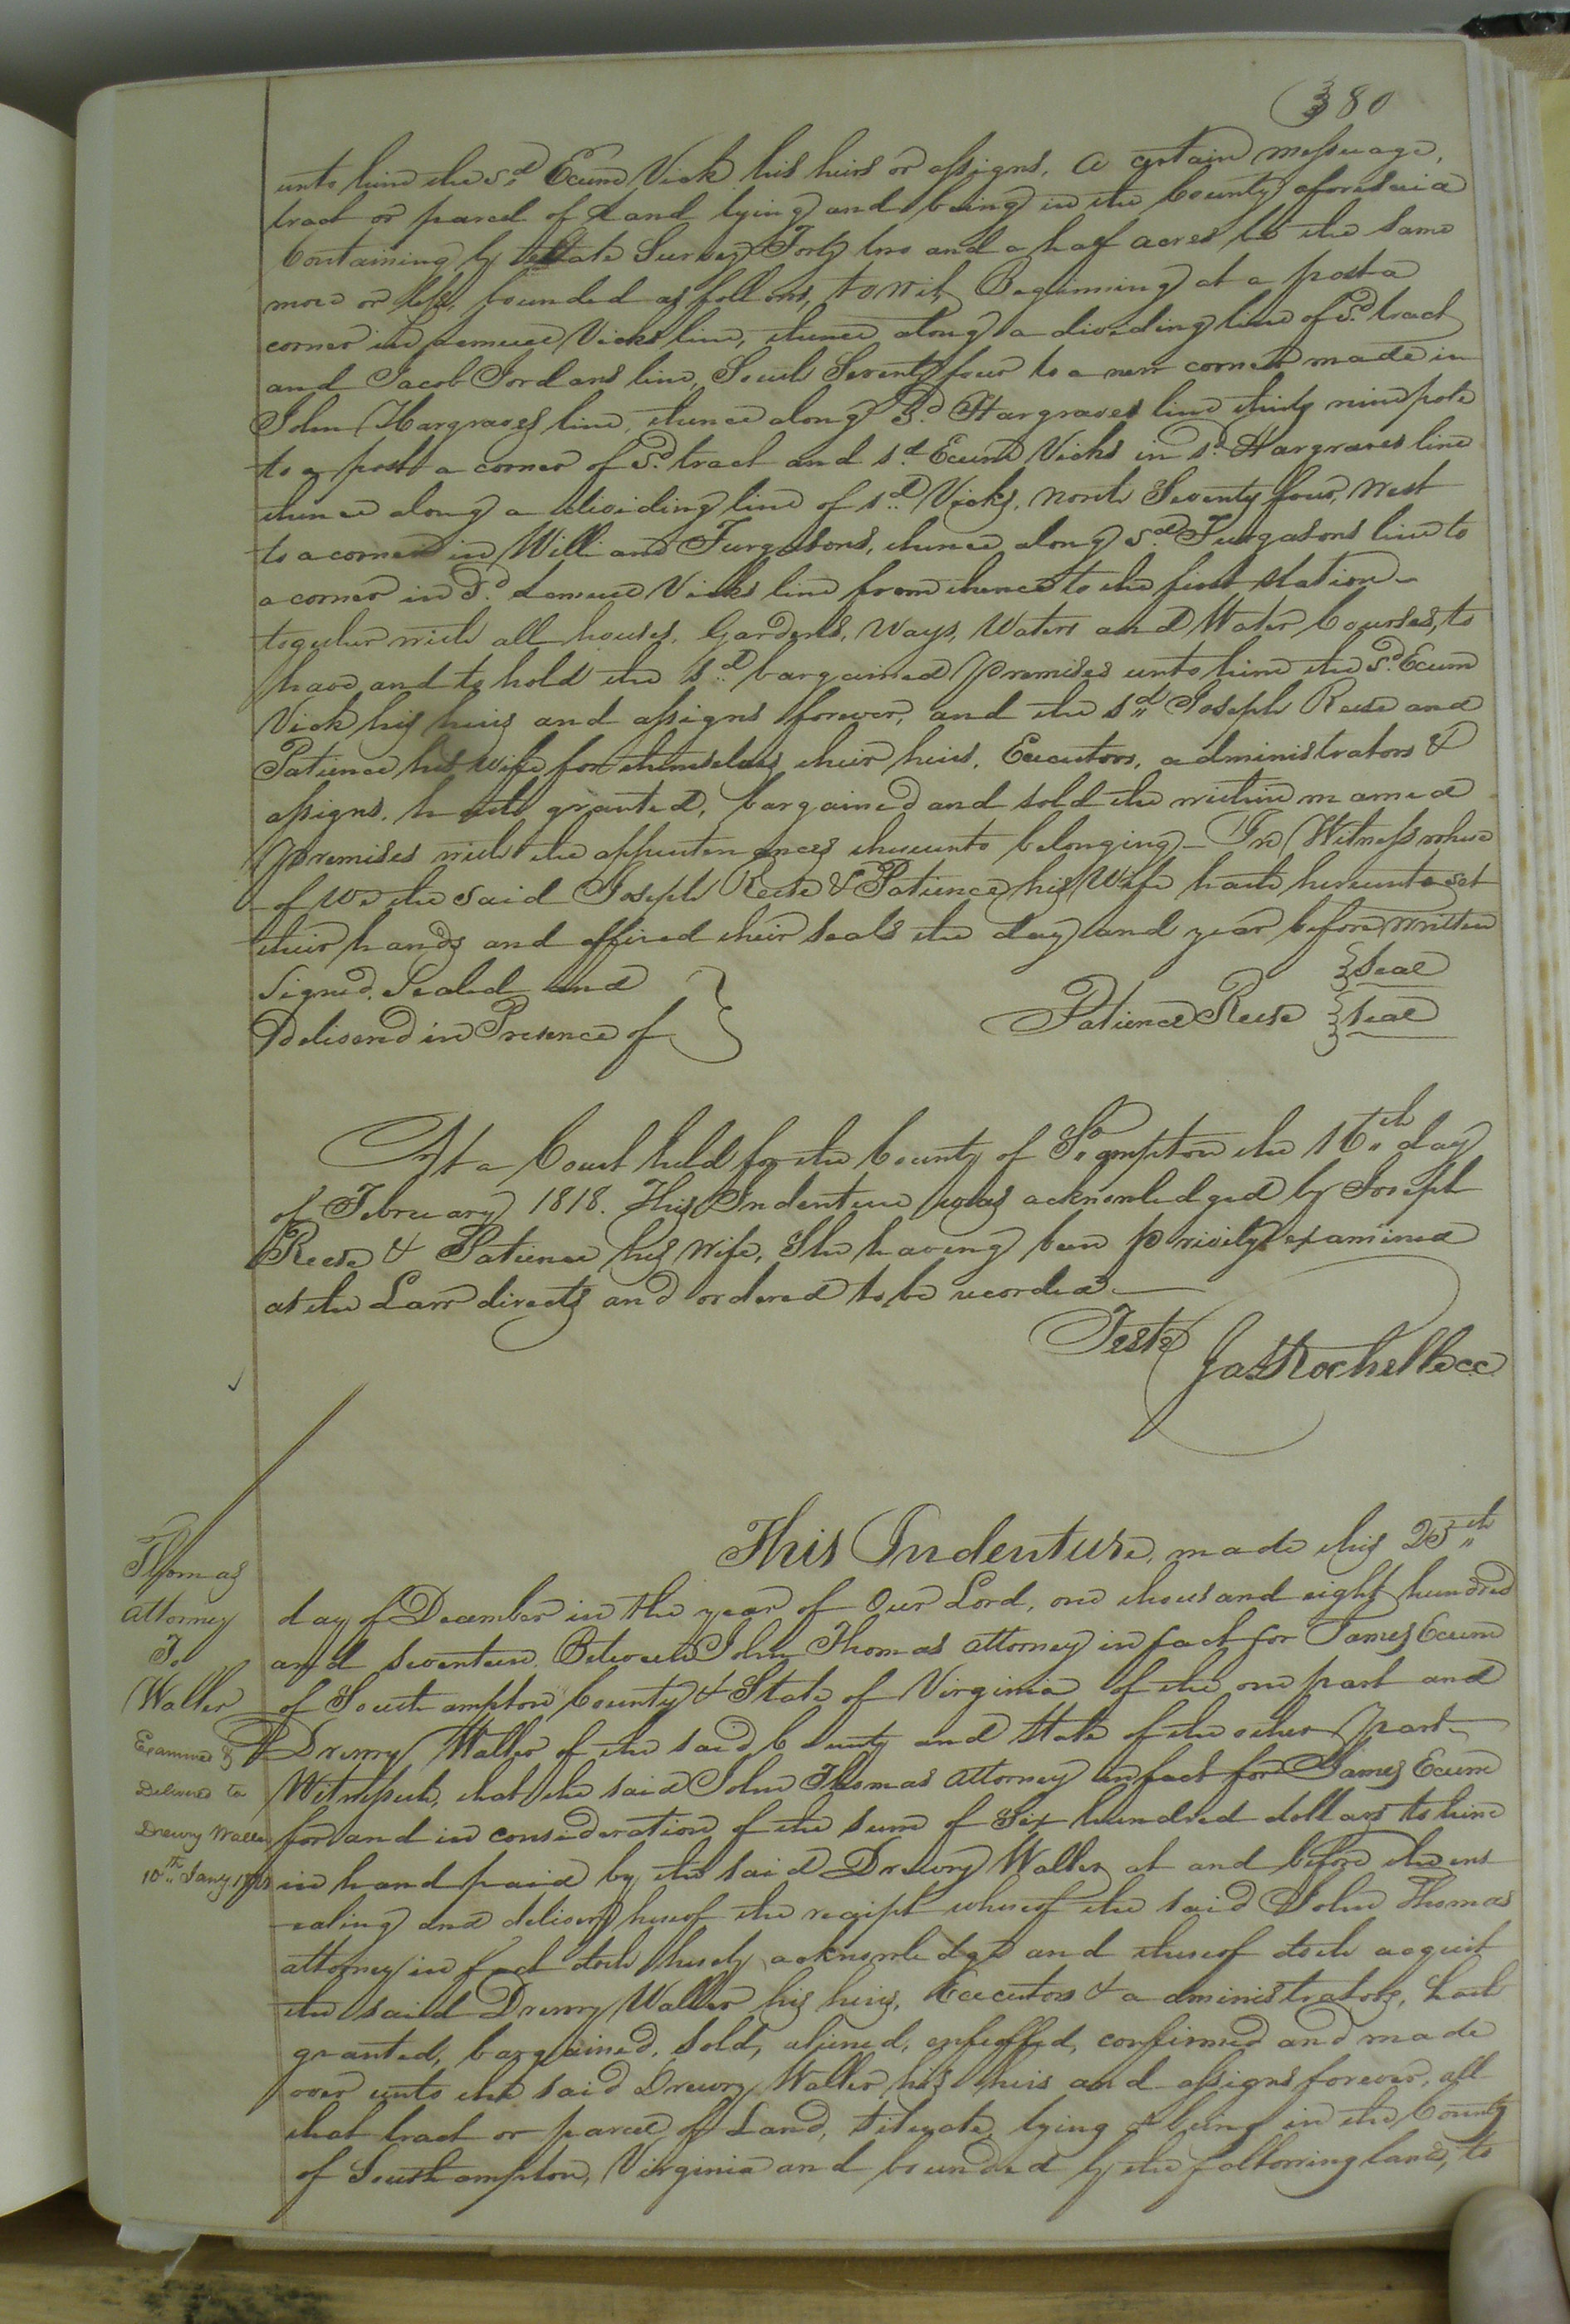 380
unto him the sd. Ecum Vick his heirs or assigns, a certain messuage,
tract or parcel of Land lying and being in the County aforesaid
Containing by late Survey Forty two and a half acres be the same
more or less, bounded as follows, to wit, Beginning at a post a
corner in Lemuel Vicks line, thence along a dividing line of sd. tract
and Jacob Jordans line, South Seventy four to a new corner made in
John Hargraves line, thence along sd. Hargraves line thirty nine pole
to a post a corner of sd. tract and sd. Ecum Vicks in sd. Hargraves line
thence along a dividing line of sd. Vicks, north Seventy four, west
to a corner in William Furgasons, thence along sd. Furgasons line to
a corner in sd. Lemuel Vicks line from thence to the first station -
together with all houses, Gardens, Ways, Waters and Water Courses, to
have and to hold the sd. bargained premises unto him the sd. Ecum
Vick his heirs and assigns forever, and the sd. Joseph Reese and
Patience his wife for themselves their heirs, Executors, administrators &
assigns, hath granted, bargained and sold the within named
premises with the appurtenances thereunto belonging - In Witness where
of We the said Joseph Reese & Patience his Wife hath hereunto set
their hands and affixed their seals the day and year before written
Signed, Sealed and
Delivered in Presence of
seal
Patience Reese seal
At a Court held for the County of So.ampton the 16th day
of February 1818. This Indenture was acknowledged by Joseph
Reese & Patience his wife, She having been privily examined
as the Law directs and ordered to be recorded -
Teste
Jas Rochelle cc
Thomas
Attorney
To
Waller
Examined &
Delivered to
Drewry Waller
10th Jany
This Indenture, made this 25th
day of December in the year of Our Lord, one thousand eight hundred
and seventeen. Between John Thomas attorney in fact for James Ecum
of Southampton County & State of Virginia of the one part and
Drewry Waller of the said County and State of the other part -
Witnesseth, that the said John Thomas Attorney in fact for James Ecum
for and in consideration of the sum of Six hundred dollars to him
in hand paid by the said Drewry Waller at and before the ens
ealing and delivery hereof the receipt whereof the said John Thomas
attorney in fact doth hereby acknowledge and thereof doth acquit
the said Drewry Waller his heirs, Executors & administrators, hath
granted, bargained, sold, aliened, enfeoffed, confirmed and made
over unto the said Drewry Waller his heirs and assigns forever, all
that tract or parcel of Land, situate, lying & being in the County
of Southampton, Virginia and bounded by the following lands, to